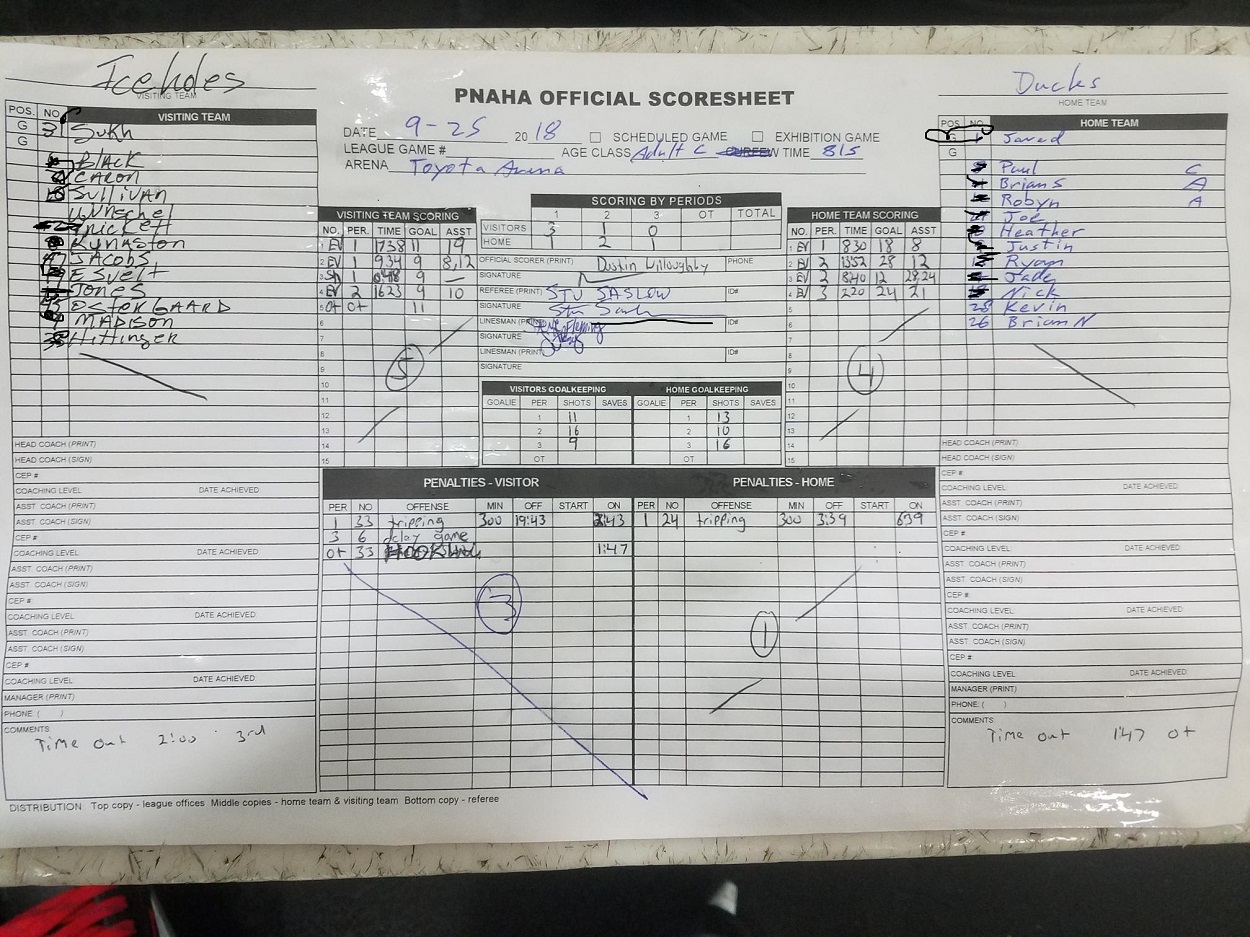 Iceholes
VISITING TEAM
PNAHA OFFICIAL SCORESHEET
Ducks
HOME TEAM
DATE 9-25 2018 SCHEDULED GAME EXHIBITION GAME
LEAGUE GAME # AGE CLASS Adult C TIME 815
ARENA Toyota Arena
POS. NO. VISITING TEAM
G Sukh
G
BLACK
CARON
SULLIVAN
Wunschel
Kynaston
JACOBS
Esvelt
Jones
OSTERGAARD
MADISON
Hittinger
VISITING TEAM SCORING
NO. PER. TIME GOAL ASST
1 EV 1 1738 11 19
2 EV 1 934 9 8,12
3 SH 1 048 9
4 EV 2 1623 9 10
5 Ot Ot 11
6
7
8
9
10
11
12
13
14
15
5
SCORING BY PERIODS
1 2 3 OT TOTAL
VISITORS 3 1 0
HOME 1 2 1
OFFICIAL SCORER (PRINT) Dustin Willoughby PHONE
SIGNATURE
REFEREE (PRINT) STU SASLOW ID#
SIGNATURE
LINESMAN (PRINT) ID#
SIGNATURE
LINESMAN (PRINT) ID#
SIGNATURE
VISITORS GOALKEEPING HOME GOALKEEPING
GOALIE PER SHOTS SAVES GOALIE PER SHOTS SAVES
1 11 1 13
2 16 2 10
3 9 3 16
OT OT
HOME TEAM SCORING
NO. PER. TIME GOAL ASST
1 EV 1 830 18 8
2 EV 2 1352 28 12
3 EV 2 840 12 28,24
4 EV 3 220 24 21
5
6
7
8
9
10
11
12
13
14
15
4
POS NO. HOME TEAM
G Jared
G
Paul C
Brian S A
Robyn A
Joe
Heather
Justin
Ryan
Jade
Nick
Kevin
26 Brian N
HEAD COACH (PRINT)
HEAD COACH (SIGN)
CEP #
COACHING LEVEL DATE ACHIEVED
ASST. COACH (PRINT)
ASST. COACH (SIGN)
CEP #
COACHING LEVEL DATE ACHIEVED
ASST. COACH (PRINT)
ASST. COACH (SIGN)
CEP #
COACHING LEVEL DATE ACHIEVED
ASST. COACH (PRINT)
ASST. COACH (SIGN)
CEP #
COACHING LEVEL DATE ACHIEVED
MANAGER (PRINT)
PHONE ( )
COMMENTS
Time out 2:00 3rd
PENALTIES - VISITOR PENALTIES - HOME
PER NO OFFENSE MIN OFF START ON PER NO OFFENSE MIN OFF START ON
1 33 tripping 300 19:43 1 24 tripping 300 3:39 639
3 6 delay game
Ot 33 1:47
3
1
HEAD COACH (PRINT)
HEAD COACH (SIGN)
CEP #
COACHING LEVEL DATE ACHIEVED
ASST. COACH (PRINT)
ASST. COACH (SIGN)
CEP #
COACHING LEVEL DATE ACHIEVED
ASST. COACH (PRINT)
ASST. COACH (SIGN)
CEP #
COACHING LEVEL DATE ACHIEVED
ASST. COACH (PRINT)
ASST. COACH (SIGN)
CEP #
COACHING LEVEL DATE ACHIEVED
MANAGER (PRINT)
PHONE: ( )
COMMENTS
Time out 1:47 ot
DISTRIBUTION Top copy - league offices Middle copies - home team & visiting team Bottom copy - referee